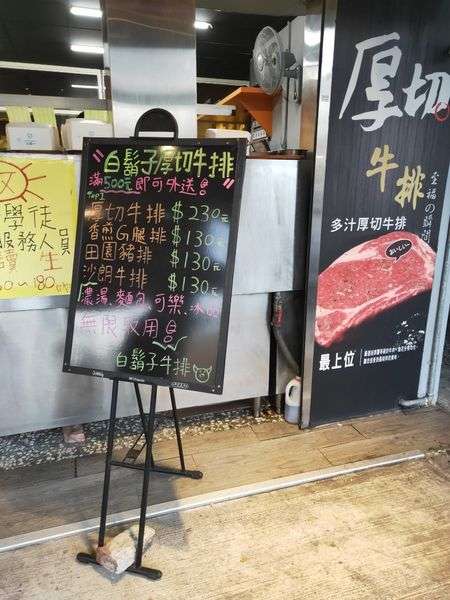 "白鬍子厚切牛排"
滿500元即可外送!
Top1
厚切牛排 $230元
香煎G腿排 $130元
田園豬排 $130元
沙朗牛排 $130元
濃湯、麵包、可樂、冰
無限享用
白鬍子牛排
學徒
服務人員
180
厚切
牛排
至福の瞬間
多汁厚切牛排
おいしい~
最上位